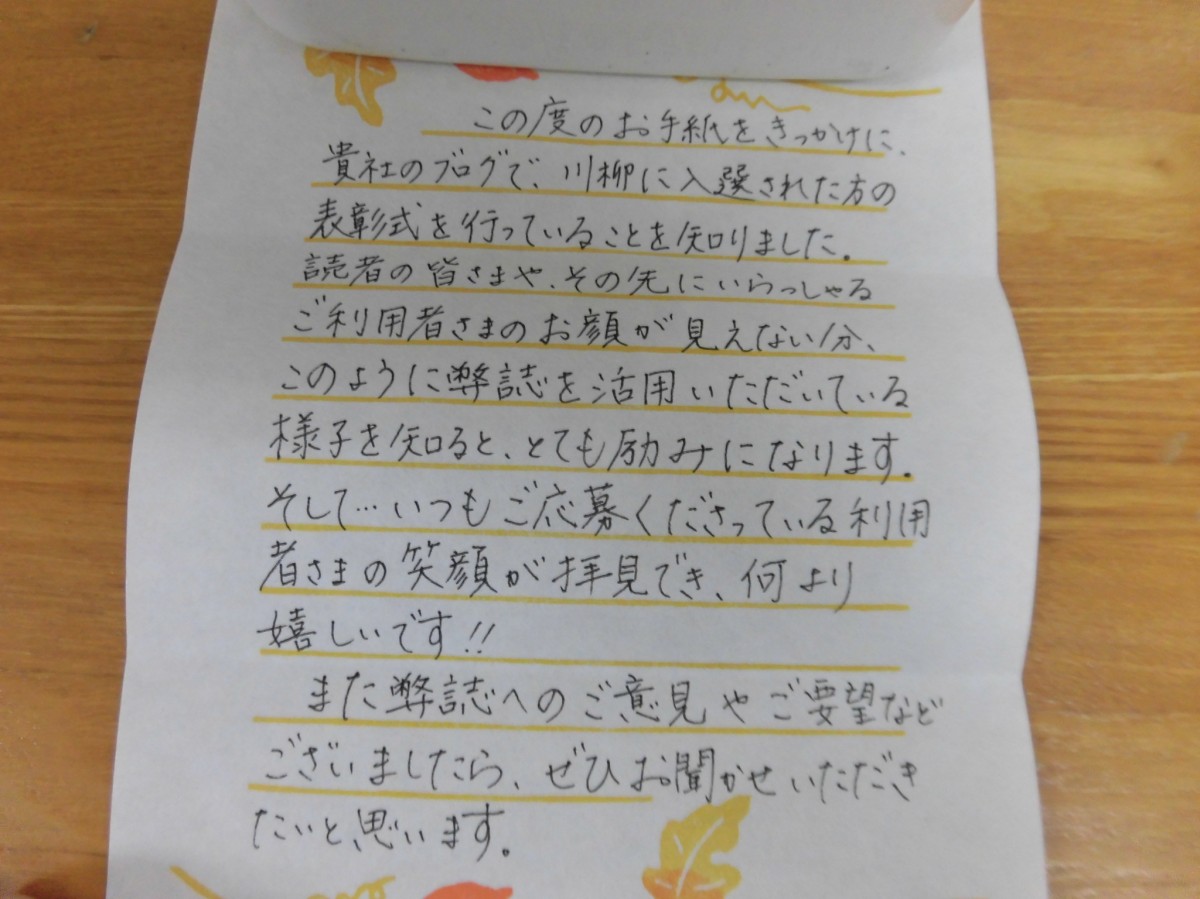 この度のお手紙をきっかけに、
貴社のブログで、川柳に入選された方の
表彰式を行っていることを知りました。
読者の皆さまや、その先にいらっしゃる
ご利用者さまのお顔が見えない分、
このように弊誌を活用いただいている
様子を知ると、とても励みになります。
そして…いつもご応募くださっている利用
者さまの笑顔が拝見でき、何より
嬉しいです!!
また弊誌へのご意見やご要望など
ございましたら、ぜひお聞かせいただき
たいと、思います。